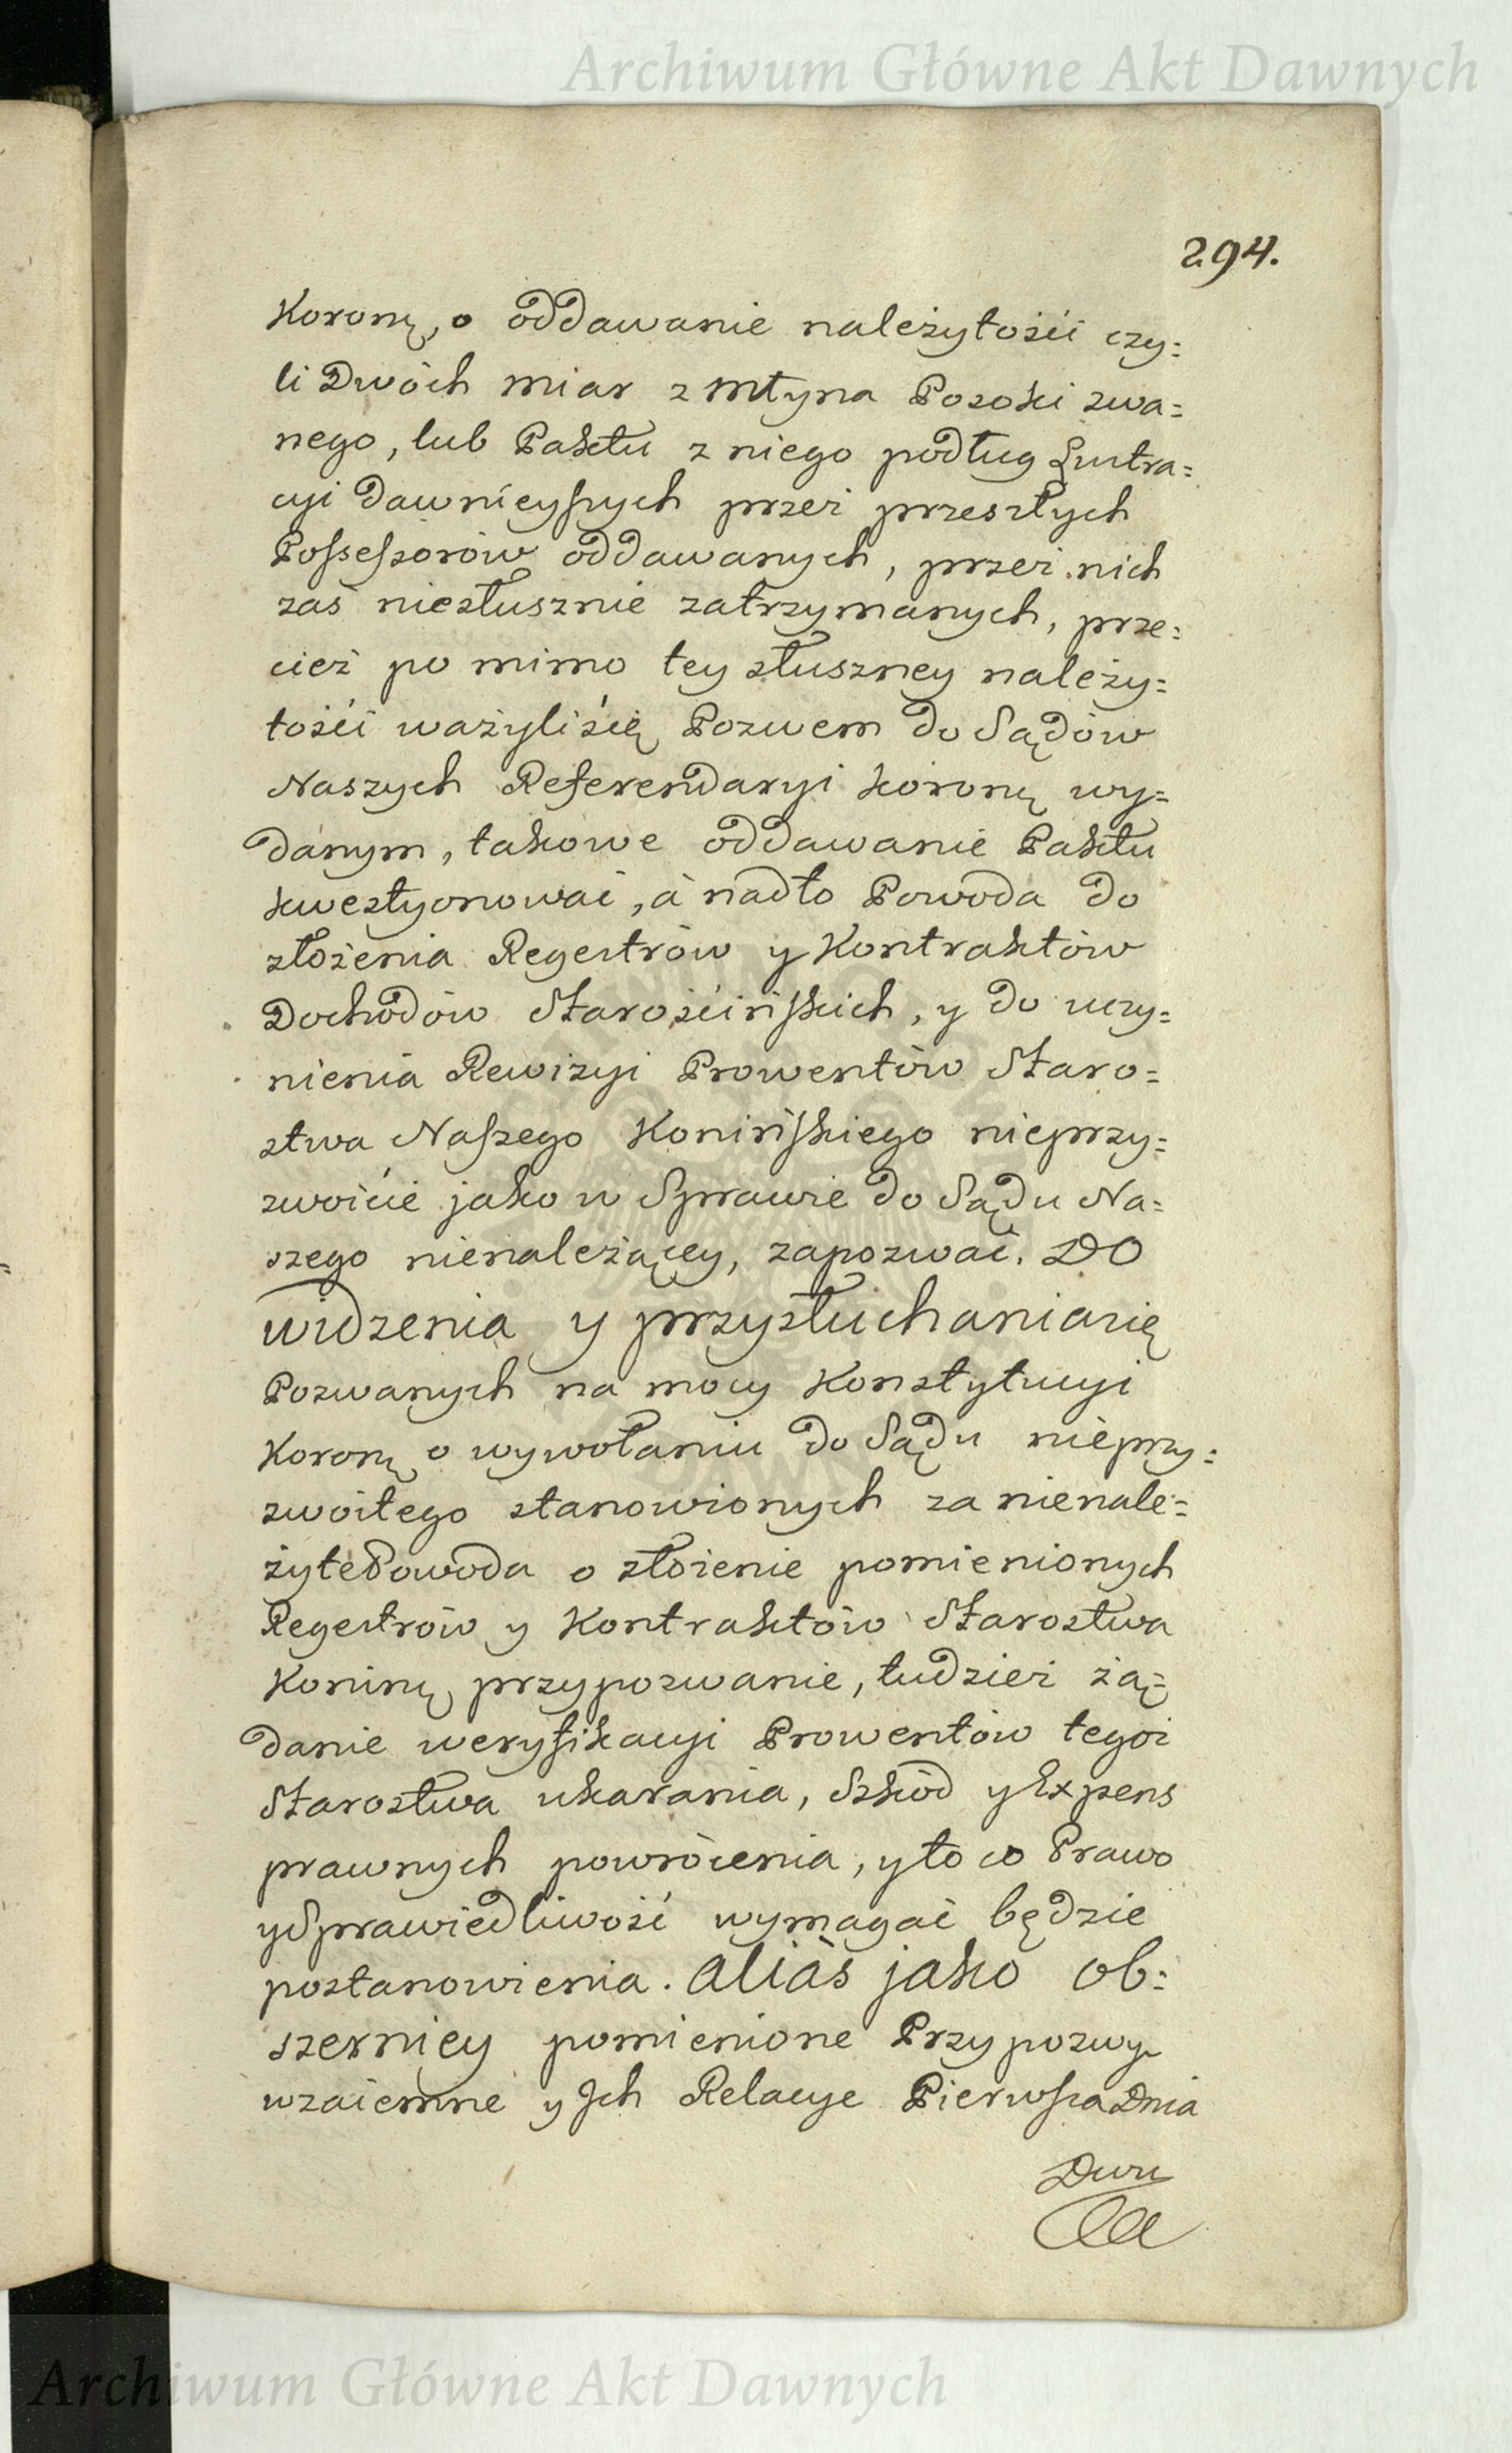 Archiwum Główne Akt Dawnych
294.
Koroną, o oddawanie należytośći czy:
li Dwóch miar z Młyna Posoki zwa:
nego, lub Paktu z niego podług Lustra:
cyi dawnieyszych przez przeszłych
Possessorów oddawanych, przez nich
zaś niesłusznie zatrzymanych, prze:
cież po mimo tey słuszney należy:
tośći ważyli śię Pozwem do Sądów
Naszych Referendaryi koroną wy:
danym, takowe oddawanie Paktu
kwestyonować, á nadto Powoda do
złożenia Regestrów y Kontraktów
Dochodów Starośćińskich, y do uczy:
nienia Rewizyi Prowentów Staro:
stwa Naszego Konińskiego nieprzy:
zwoicie jako w Sprawie do Sądu Na:
szego nienależącey, zapozwać. DO
widzenia y przysłuchania się
Pozwanych na mocy Konstytucyi
Koroną o wywołaniu do Sądu nieprzy:
zwoitego stanowionych za nienale:
żyte Powoda o złożenie pomienionych
Regestrów y Kontraktów Starostwa
Koniną przypozwanie, tudzież żą:
danie weryfikacyi Prowentów tegoż
Starostwa ukarania, Szkód y Expens
prawnych powrócenia, y to co Prawo
y Sprawiedliwość wymagać będzie
postanowienia. aliàs jako ob:
szerniey pomienione Przypozwy
wzaiemne y Jch Relacye Pierwsza Dnia
Dwu
Archiwum Główne Akt Dawnych